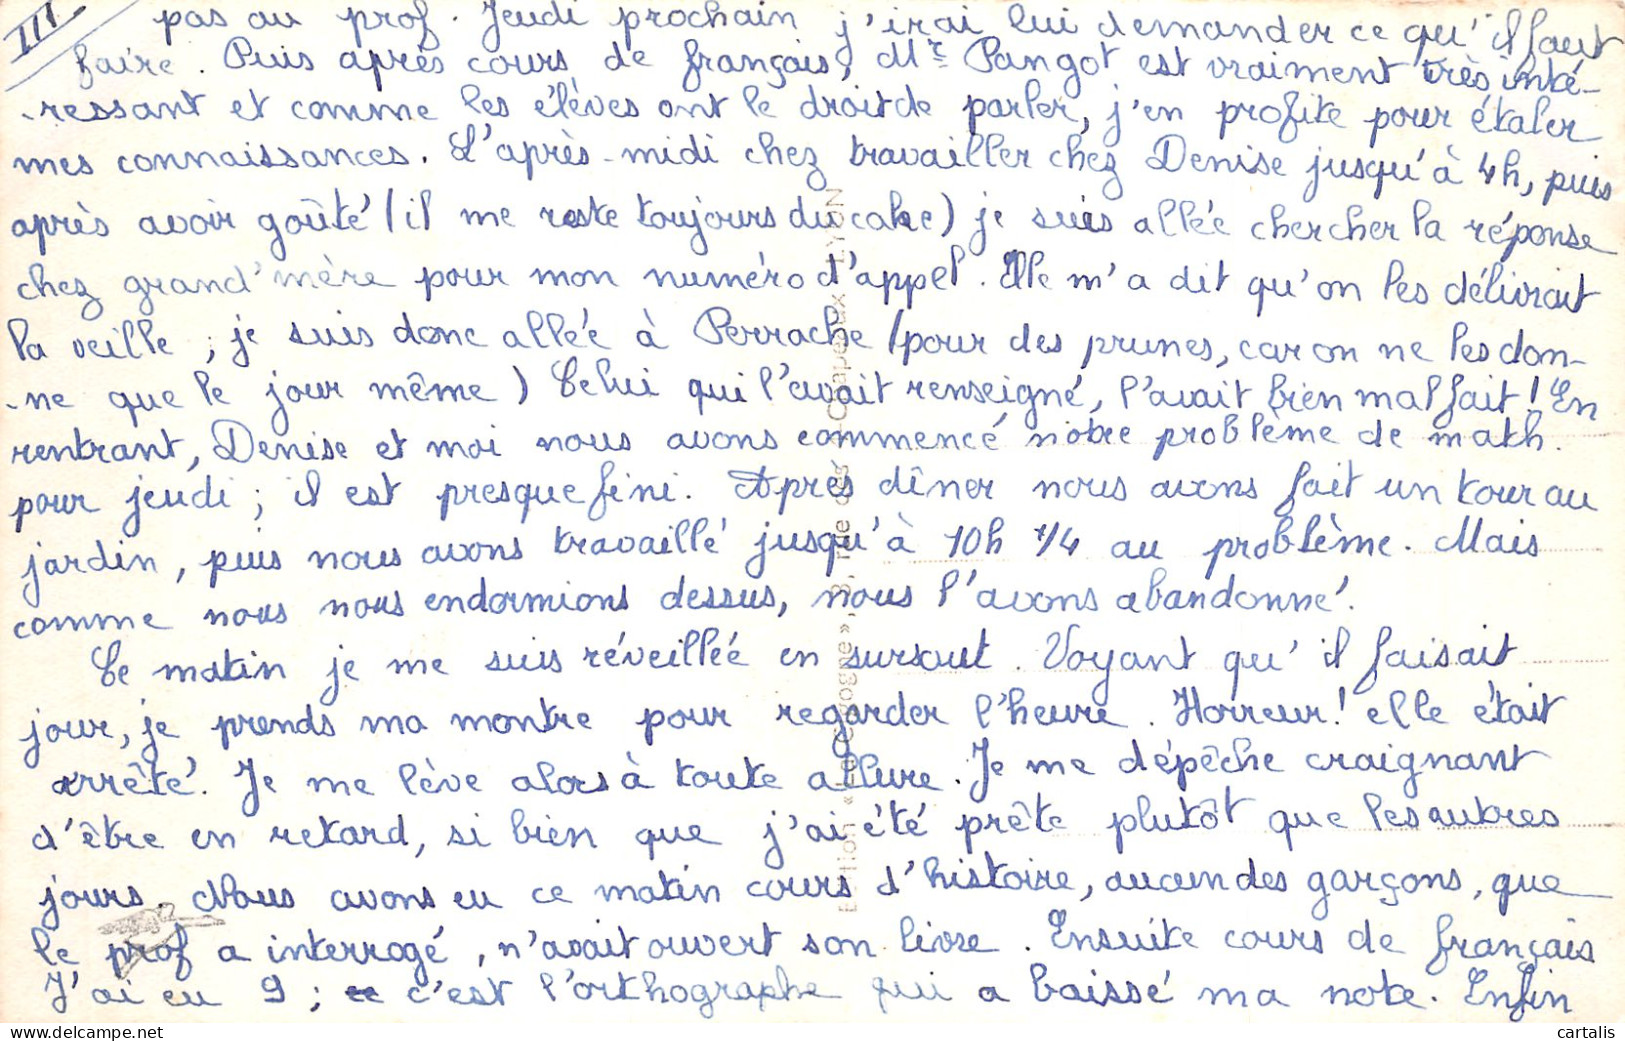 III
pas au prof. Jeudi prochain j'irai lui demander ce qu'il faut
faire. Puis après cours de français, Mr Pangot est vraiment très inté-
-ressant et comme les élèves ont le droit de parler, j'en profite pour étaler
mes connaissances. L'après-midi chez travailler chez Denise jusqu'à 4h, puis
après avoir goûté (il me reste toujours du cake) je suis allée chercher la réponse
chez grand'mère pour mon numéro d'appel. Elle m'a dit qu'on les délivrait
la veille ; je suis donc allée à Perrache (pour des prunes, car on ne les don-
-ne que le jour même) Celui qui l'avait renseigné, l'avait bien mal fait ! En
rentrant, Denise et moi nous avons commencé notre problème de math.
pour jeudi ; il est presque fini. Après dîner nous avons fait un tour au
jardin, puis nous avons travaillé jusqu'à 10h 1/4 au problème. Mais
comme nous nous endormions dessus, nous l'avons abandonné.
Ce matin je me suis réveillée en sursaut. Voyant qu'il faisait
jour, je prends ma montre pour regarder l'heure. Horreur ! elle était
arrêté. Je me lève alors à toute allure. Je me dépêche craignant
d'être en retard, si bien que j'ai été prête plutôt que les autres
jours. Nous avons eu ce matin cours d'histoire, aucun des garçons, que
le prof a interrogé, n'avait ouvert son livre. Ensuite cours de français
J'ai eu 9 ; c'est l'orthographe qui a baissé ma note. Enfin
cartalis